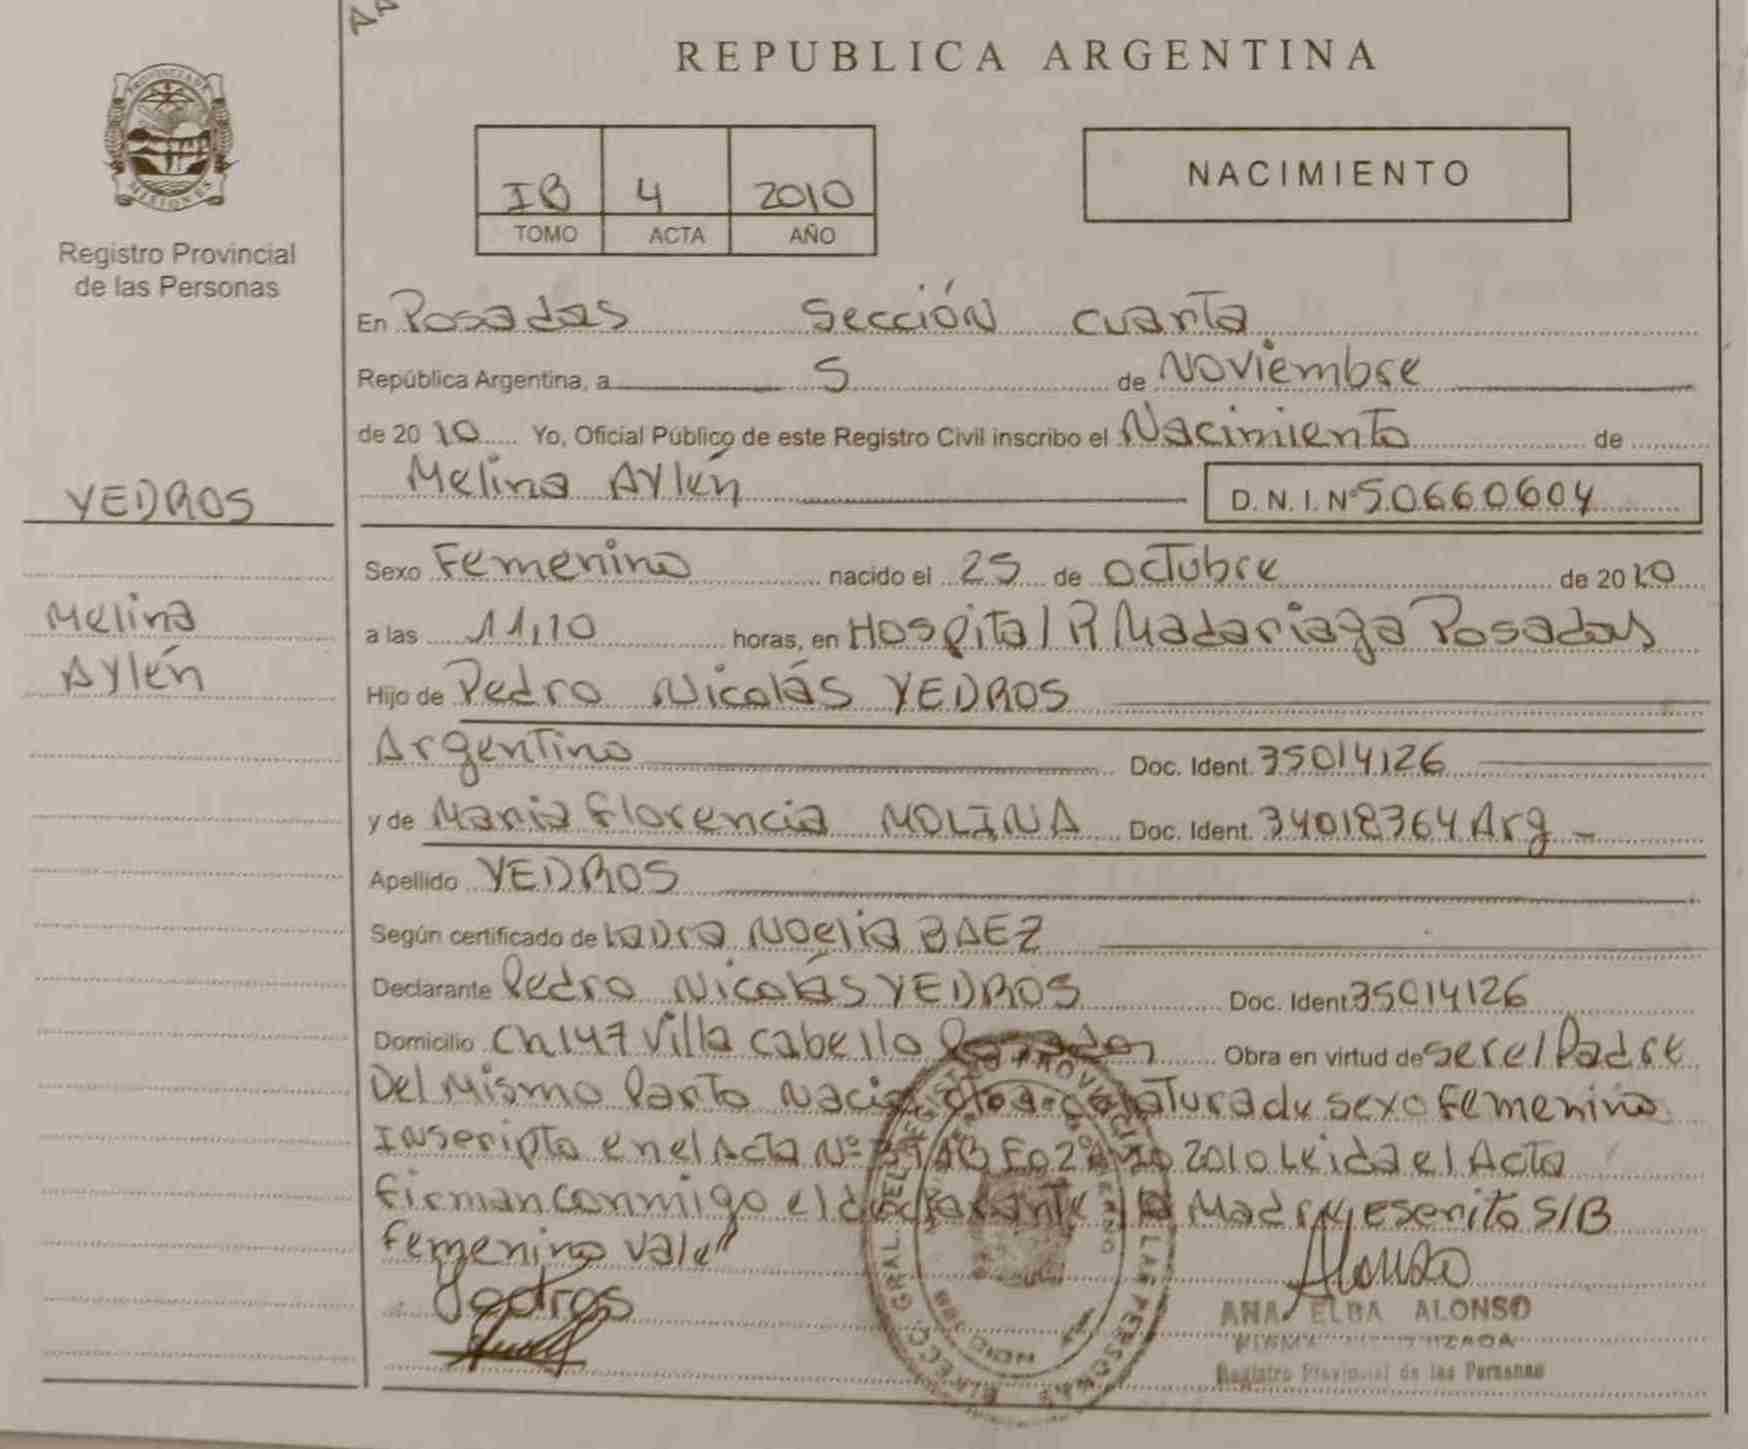 REPUBLICA ARGENTINA
PROVINCIA DE
MISIONES
Registro Provincial
de las Personas
IB 4 2010
TOMO ACTA AÑO
NACIMIENTO
En Posadas Sección cuarta
República Argentina, a 5 de Noviembre
de 2010 Yo, Oficial Público de este Registro Civil inscribo el Nacimiento de
Melina Aylén D.N.I. Nº 50660604
YEDROS
Melina
Aylén
Sexo Femenino nacido el 25 de octubre de 2010
a las 11,10 horas, en Hospital R Madariaga Posadas
Hijo de Pedro Nicolás YEDROS
Argentino Doc. Ident. 35014126
y de Maria Florencia MOLINA Doc. Ident. 34018364 Arg
Apellido YEDROS
Según certificado de Laura Noelia BAEZ
Declarante Pedro Nicolás YEDROS Doc. Ident 35014126
Domicilio Ch 147 Villa Cabello Posadas Obra en virtud de ser el Padre
Del mismo Parto Nació de sexo femenino
Inscripto en el Acta Nº 2010 Leida el Acta
firman conmigo el declarante la Madre escrito S/B
femenino vale"
Yedros
Alonso
ANA ELBA ALONSO
FIRMA AUTORIZADA
Registro Provincial de las Personas